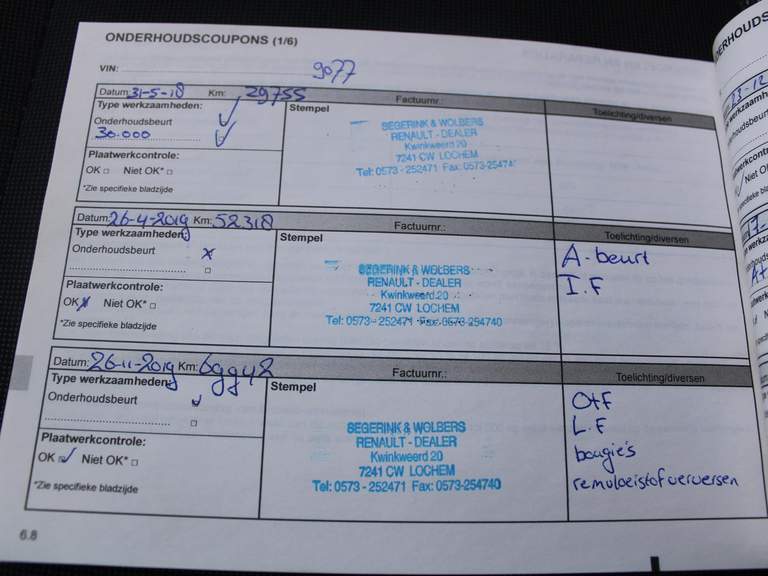 ONDERHOUDSCOUPONS (1/6)
VIN: 9077
Datum: 31-5-18 Km: 29755 Factuurnr.: Toelichting/diversen
Type werkzaamheden: Stempel
Onderhoudsbeurt
30.000
Plaatwerkcontrole:
OK Niet OK*
*Zie specifieke bladzijde
SEGERINK & WOLBERS
RENAULT - DEALER
Kwinkweerd 20
7241 CW LOCHEM
Tel: 0573 - 252471 Fax: 0573-25474
Datum: 26-4-2019 Km: 52318 Factuurnr.: Toelichting/diversen
Type werkzaamheden: Stempel
Onderhoudsbeurt
Plaatwerkcontrole:
OK Niet OK*
*Zie specifieke bladzijde
SEGERINK & WOLBERS
RENAULT - DEALER
Kwinkweerd 20
7241 CW LOCHEM
Tel: 0573 - 252471 Fax: 0573-254740
A-beurt
I.F
Datum: 26-11-2019 Km: Factuurnr.: Toelichting/diversen
Type werkzaamheden: Stempel
Onderhoudsbeurt
Plaatwerkcontrole:
OK Niet OK*
*Zie specifieke bladzijde
SEGERINK & WOLBERS
RENAULT - DEALER
Kwinkweerd 20
7241 CW LOCHEM
Tel: 0573 - 252471 Fax: 0573-254740
O+F
L.F
bougie's
remvloeistof verversen
6.8